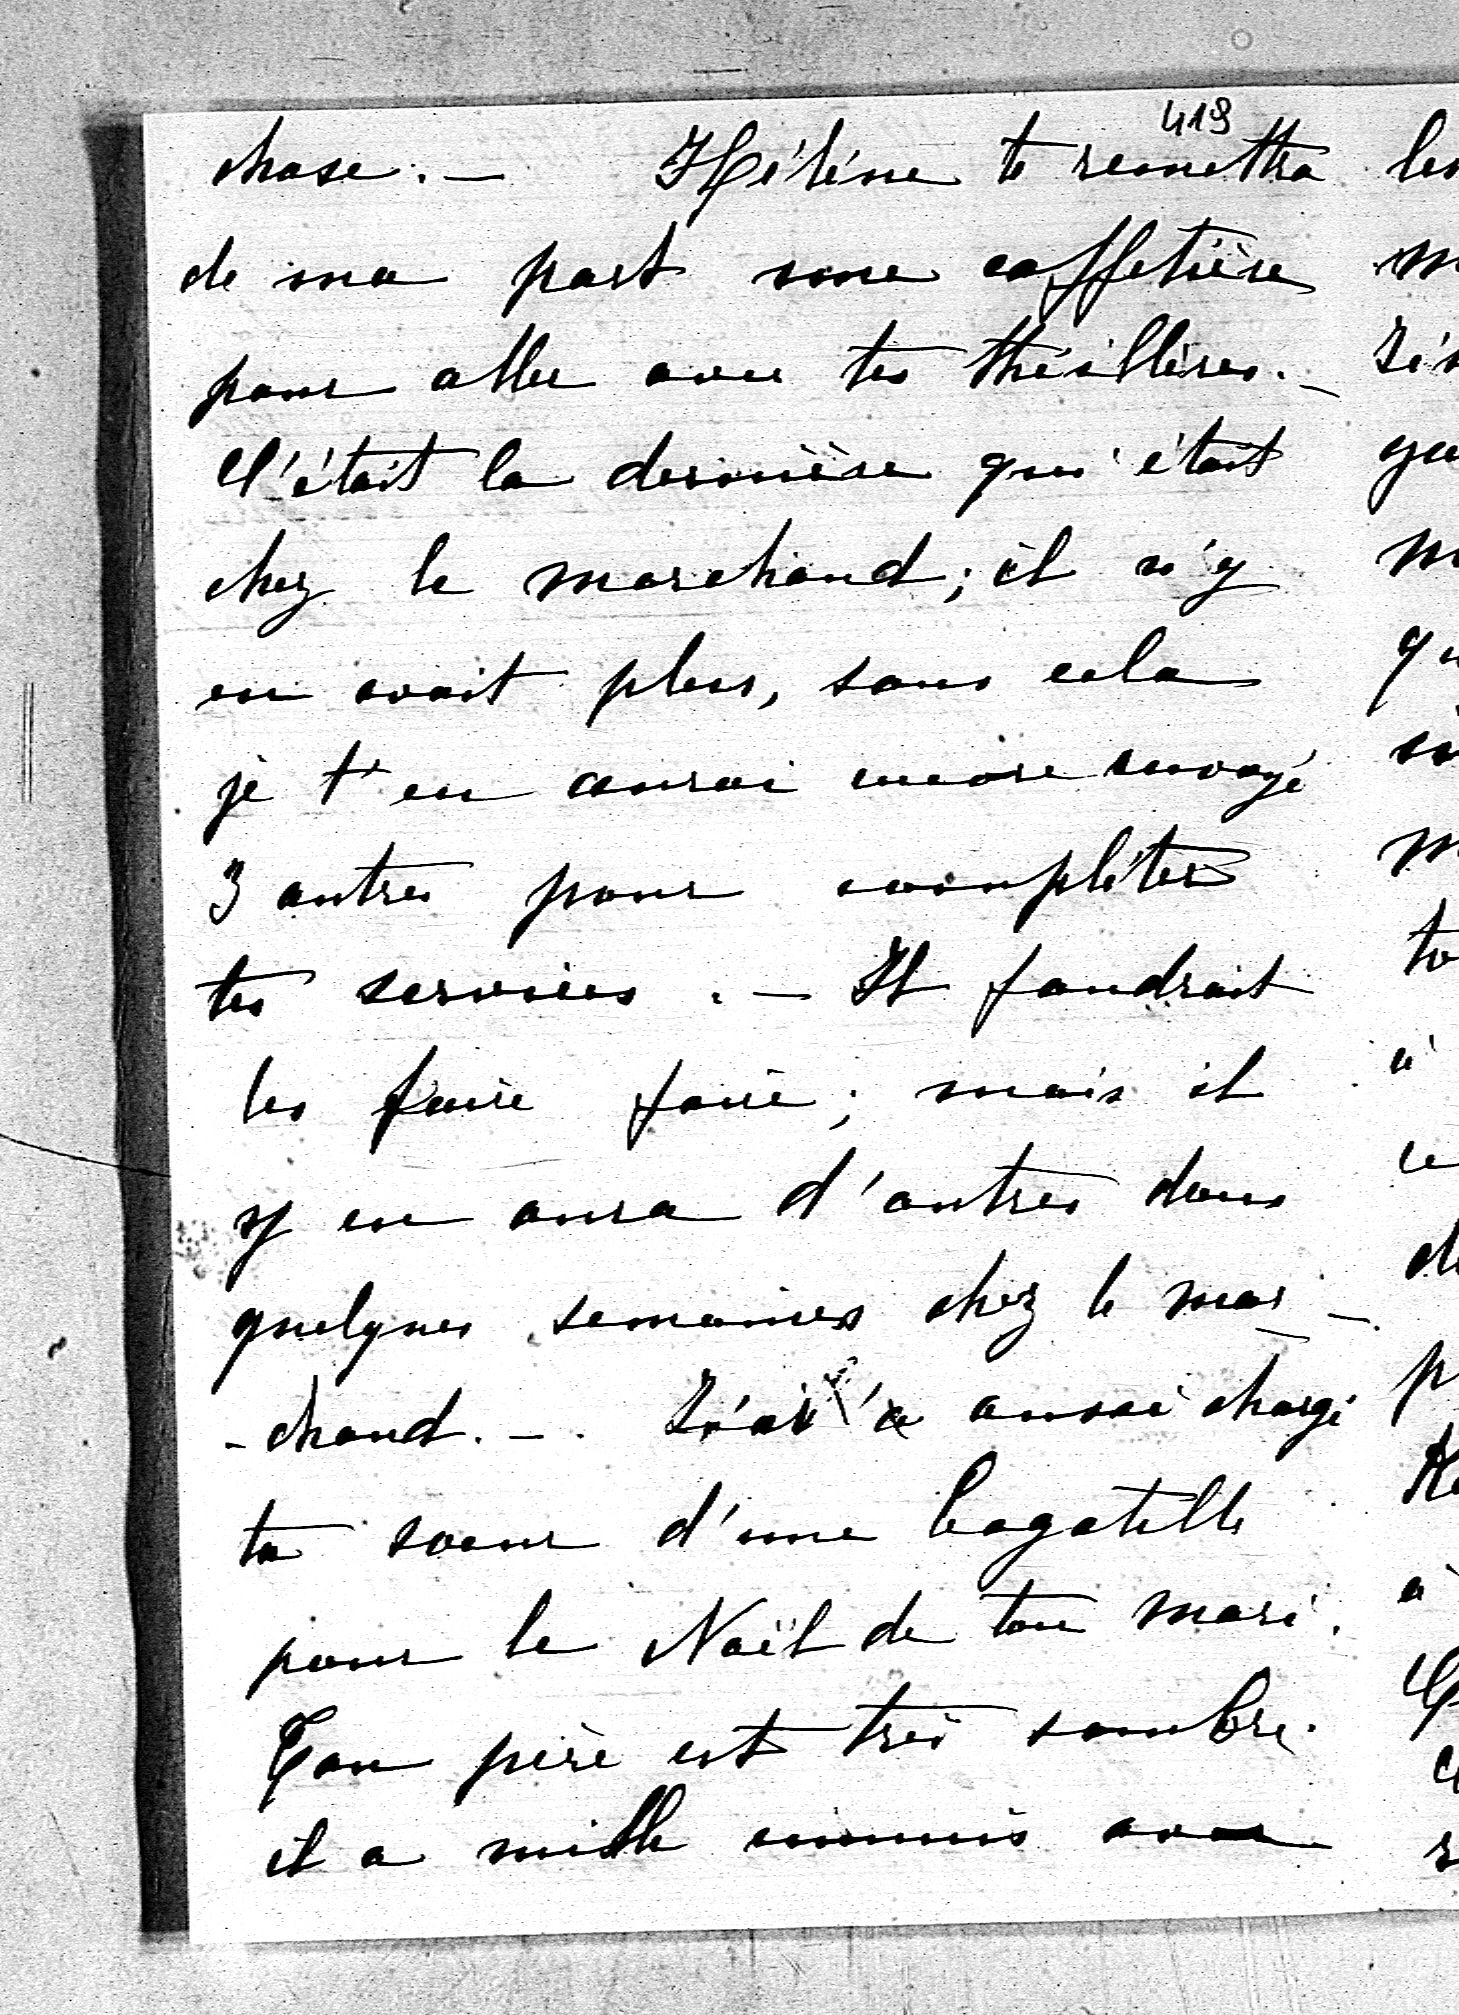 419
chose. — Hélène te remettra
de ma part une caffetière
pour aller avec tes théillères. —
C'était la dernière qui était
chez le marchand; il n'y
en avait plus, sans cela
je t'en aurai encore envoyé
3 autres pour complèter
tes services. — Il faudrait
les faire faire; mais il
y en aura d'autres dans
quelques semaines chez le mar-
-chand. — J'ai aussi chargé
ta soeur d'une bagatelle
pour le Noël de ton mari.
Ton père est très sombre.
il a mille ennuis avec